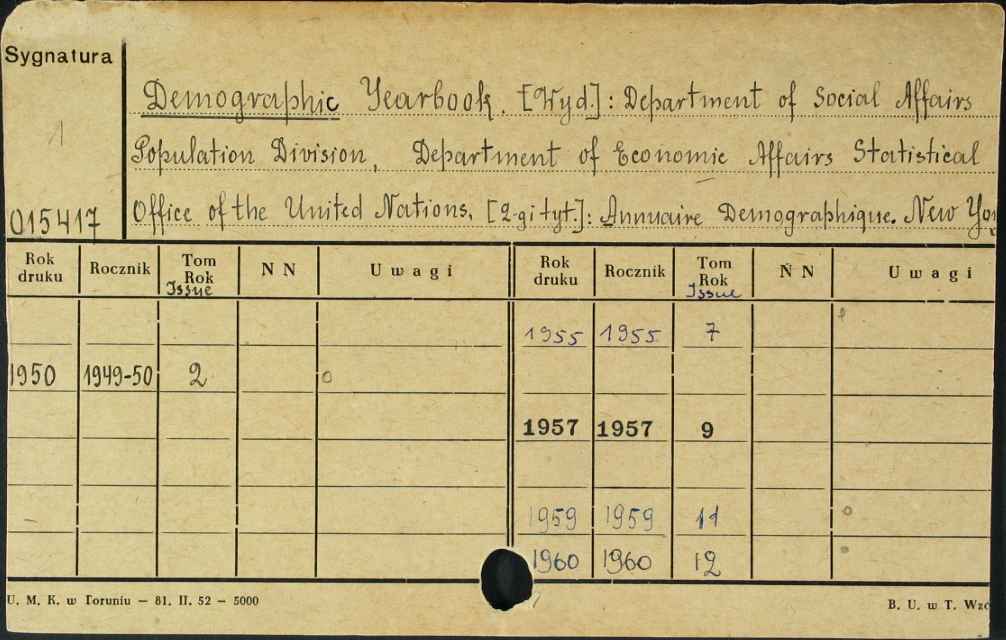 Sygnatura
1
015417
Demographic Yearbook. [Wyd.]: Department of Social Affairs
Population Division, Department of Economic Affairs Statistical
Office of the United Nations. [2-gi tyt.]: Annuaire Demographique. New Yo
Rok druku Rocznik Tom Rok Issue N N Uwagi Rok druku Rocznik Tom Rok Issue N N Uwagi
1955 1955 7
1950 1949-50 2
1957 1957 9
1959 1959 11
1960 1960 12
U. M. K. w Toruniu — 81. II. 52 — 5000
B. U. w T. Wzo